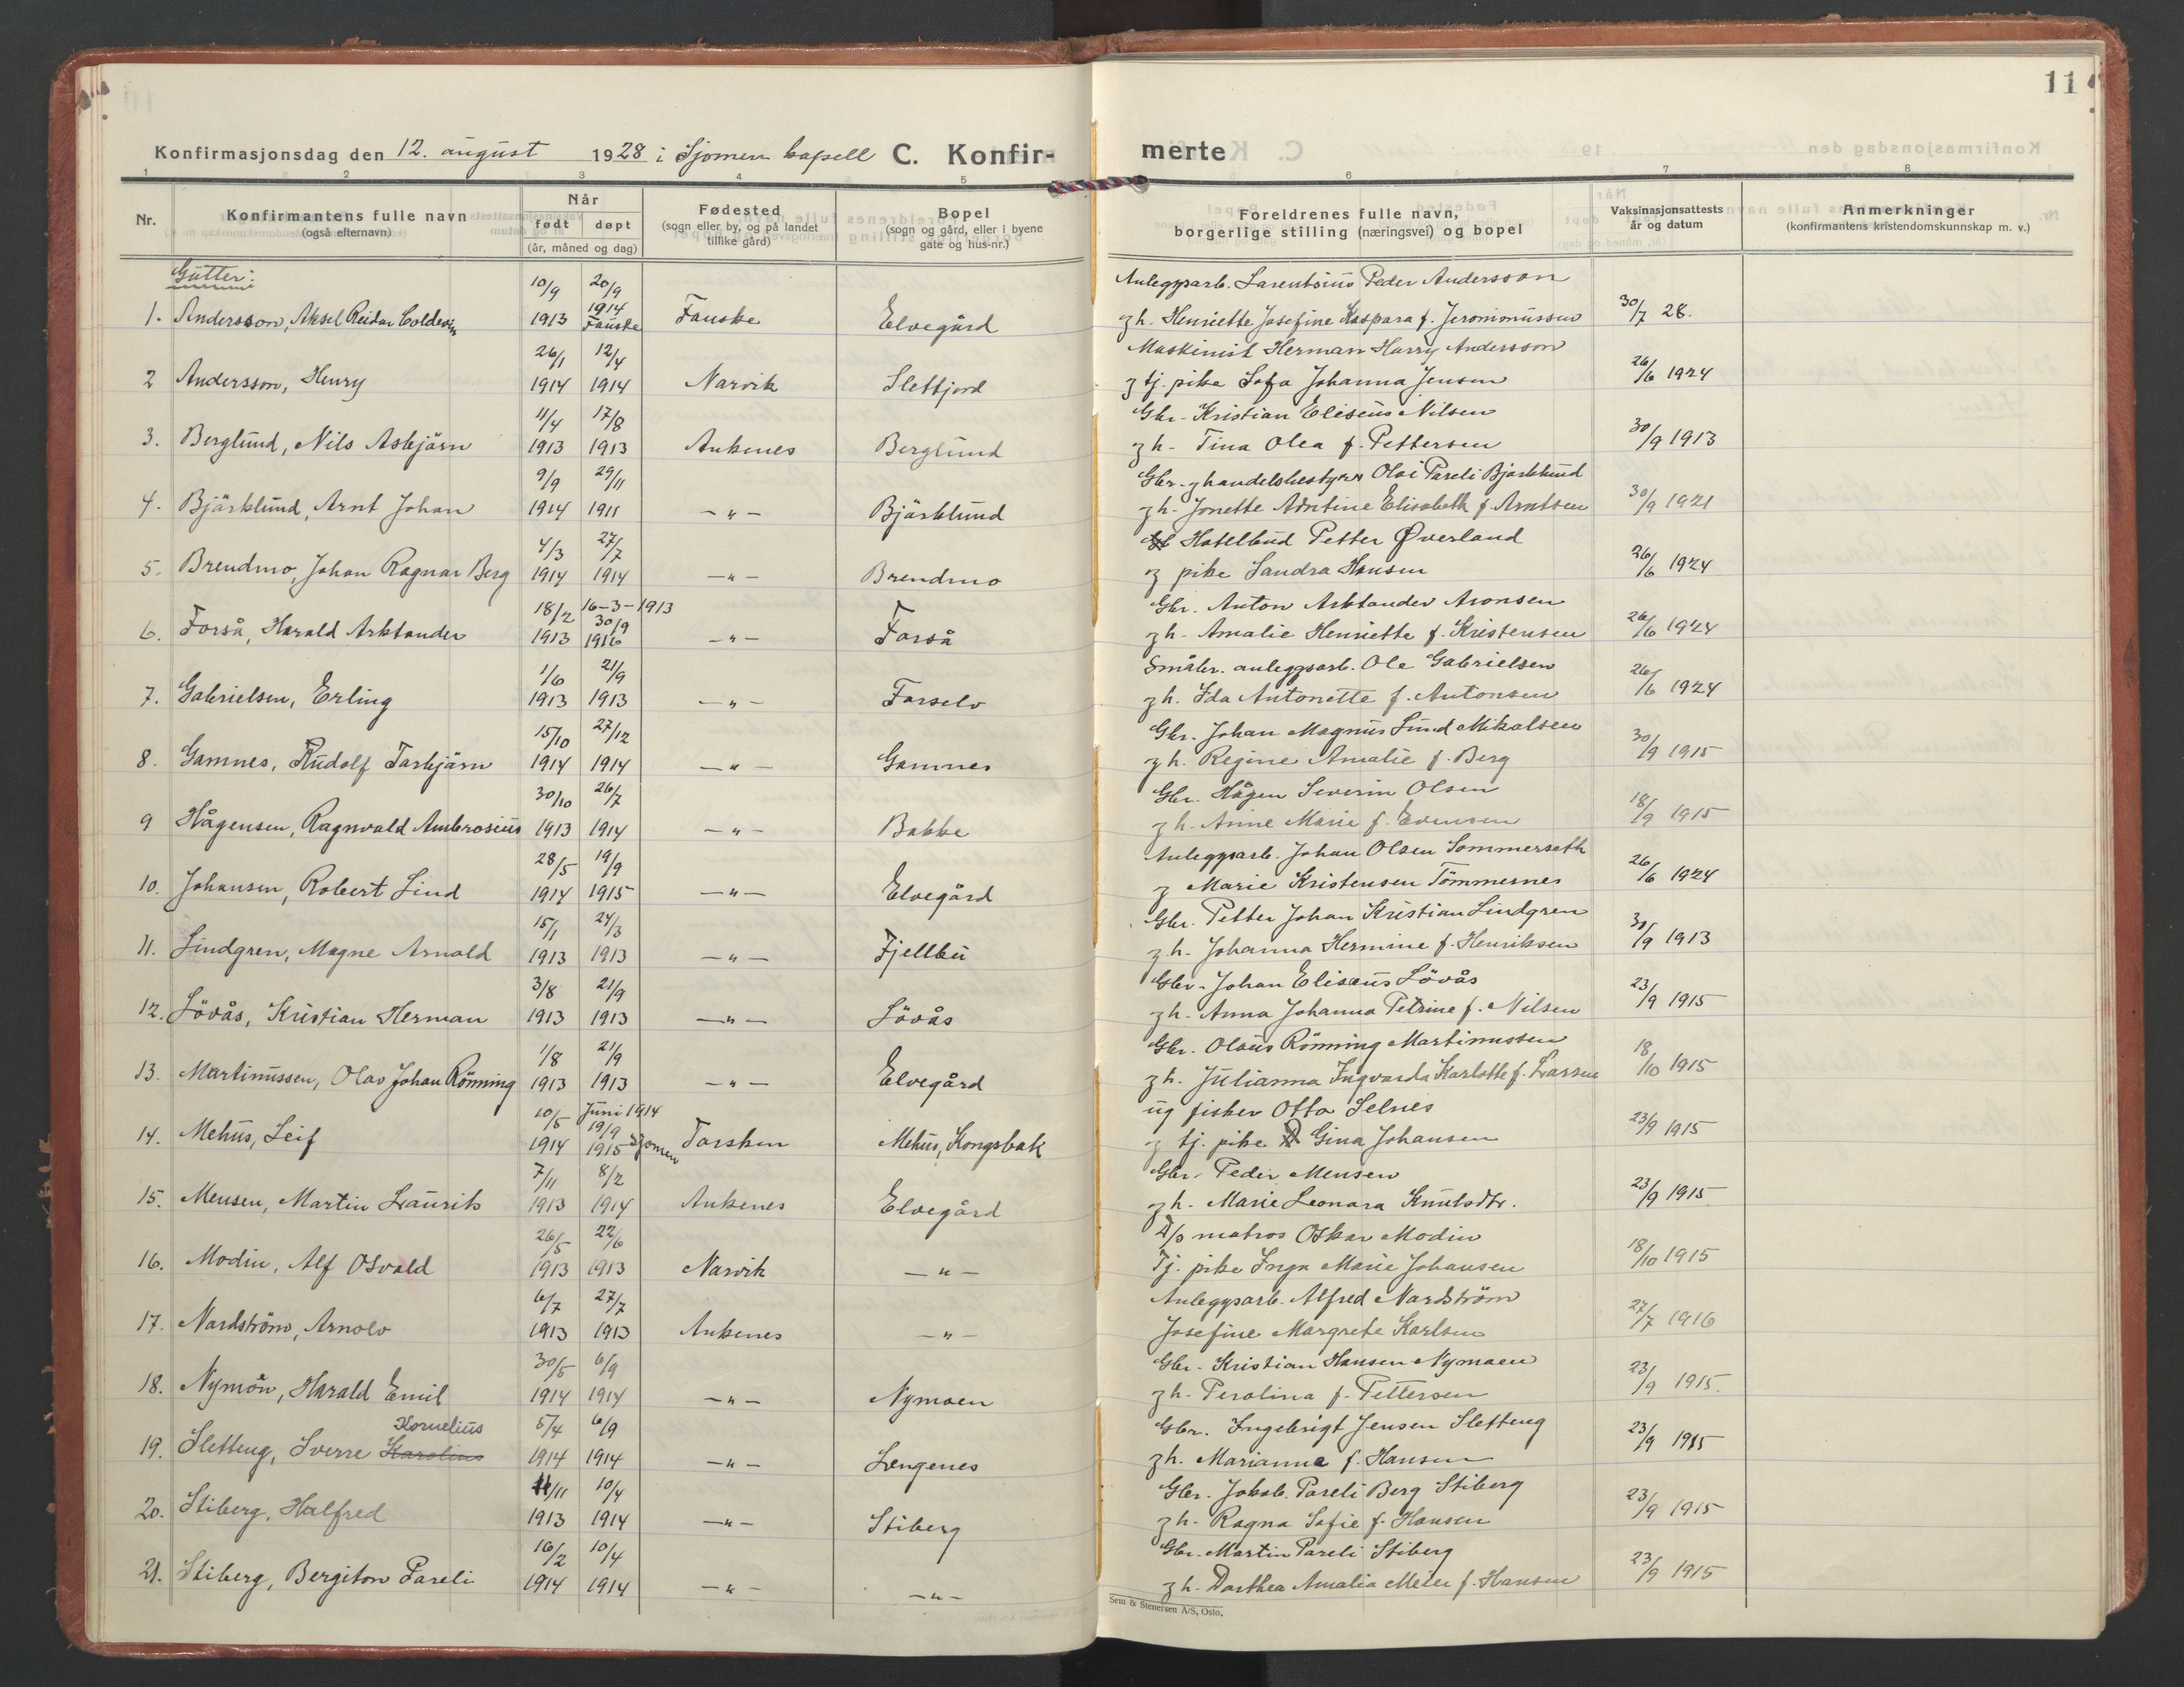 11
Konfirmasjonsdag den 12. august 1928 i Sjomen kapell C. Konfir-
merte
1 2 3 4 5 6 7 8
Nr.
Konfirmantens fulle navn
(også efternavn)
Når
født døpt
(år, måned og dag)
Fødested
(sogn eller by, og på landet
tillike gård)
Bopel
(sogn og gård, eller i byene
gate og hus-nr.)
Foreldrenes fulle navn,
borgerlige stilling (næringsvei) og bopel
Vaksinasjonsattests
år og datum
Anmerkninger
(konfirmantens kristendomskunnskap m. v.)
Gutter:
10/9 20/9 Anleggsarb. Larentsius Peder Andersson
1. Andersson, Aksel Reidar Coldevin 1913 1914 Fauske Fauske Elvegård g h. Henriette Josefine Kaspara f. Jeronimussen 30/7 28.
26/1 12/4 Maskinist Herman Harry Andersson
2 Andersson, Henry 1914 1914 Narvik Slettjord g tj. pike Sofa Johanna Jensen 26/6 1924
11/4 17/8 Gbr. Kristian Eliseus Nilsen
3. Berglund, Nils Asbjörn 1913 1913 Ankenes Berglund g h. Tina Olea f. Pettersen 30/9 1913
9/9 29/11 Gbr. g handelsbestyrer Olai Pareli Bjørklund
4. Bjørklund, Arnt Johan 1914 1911 -"- Bjørklund g h. Jonette Adritine Elisabeth f. Arntsen 30/9 1921
4/3 27/7 Hotellbud Petter Øverland
5. Brendmo, Johan Ragnar Berg 1914 1914 -"- Brendmo g pike Sandra Hansen 26/6 1924
18/2 16-3-1913 30/9 Gbr. Anton Arktander Aronsen
6. Forså, Harald Arktander 1913 1916 -"- Forså g h. Amalie Henriette f. Kristensen 26/6 1924
1/6 21/9 Småbr. anleggsarb. Ole Gabrielsen
7. Gabrielsen, Erling 1913 1913 -"- Forselv g h. Ida Antonette f. Antonsen 26/6 1924
15/10 27/12 Gbr. Johan Magnus Lund Mikalsen
8. Gamnes, Rudolf Torbjörn 1914 1914 -"- Gamnes g h. Regine Amalie f. Berg 30/9 1915
30/10 26/7 Gbr. Hågen Severin Olsen
9 Hågensen, Ragnvald Ambrosius 1913 1914 -"- Bakke g h. Anne Marie f. Evensen 18/9 1915
28/5 19/9 Anleggsarb. Johan Olsen Sommerseth
10. Johansen, Robert Lind 1914 1915 -"- Elvegård g Marie Kristensen Tömmernes 26/6 1924
15/1 24/3 Gbr. Petter Johan Kristian Lindgren
11. Lindgren, Magne Arnold 1913 1913 -"- Fjellbu g h. Johanna Hermine f. Henriksen 30/9 1913
3/8 21/9 Gbr. Johan Eliseus Lövås
12. Lövås, Kristian Herman 1913 1913 -"- Lövås g h. Anna Johanna Petrine f. Nilsen 23/9 1915
1/8 21/9 Gbr. Olaus Rönning Martinussen
13. Martinussen, Olav Johan Rönning 1913 1913 -"- Elvegård g h. Julianna Ingvarda Karlotte f. Larsen 18/10 1915
10/5 Juni 1914 19/9 ug fisker Otto Selnes
14. Mehus, Leif 1914 1915 Sjomen Torsken Mehus, Kongsbak g tj. pike Gina Johansen 23/9 1915
7/11 8/2 Gbr. Peder Mensen
15. Mensen, Martin Laurits 1913 1914 Ankenes Elvegård g h. Marie Leonora Knutsdtr. 23/9 1915
26/5 22/6 D/s matros Oskar Modin
16. Modin, Alf Osvald 1913 1913 Narvik -"- Tj. pike Inga Marie Johansen 18/10 1915
6/7 27/7 Anleggsarb. Alfred Nordström
17. Nordström, Arnolv 1913 1913 Ankenes -"- Josefine Margrete Karlsen 27/7 1916
30/5 6/9 Gbr. Kristian Hansen Nymoen
18. Nymön, Harald Emil 1914 1914 -"- Nymoen g h. Perolina f. Pettersen 23/9 1915.
Kornelius 5/4 6/9 Gbr. Ingebrigt Jensen Sletteng
19. Sletteng, Sverre Karolius 1914 1914 -"- Lengenes g h. Marianne f. Hansen 23/9 1915
11/11 10/4 Gbr. Jakob Pareli Berg Stiberg
20. Stiberg, Halfred 1913 1914 -"- Stiberg g h. Ragna Sofie f. Hansen 23/9 1915
16/2 10/4 Gbr. Martin Pareli Stiberg
21. Stiberg, Bergiton Pareli 1914 1914 -"- -"- g h. Dorthea Amalia Meier f. Hansen 23/9 1915
Sem & Stenersen A/S, Oslo.